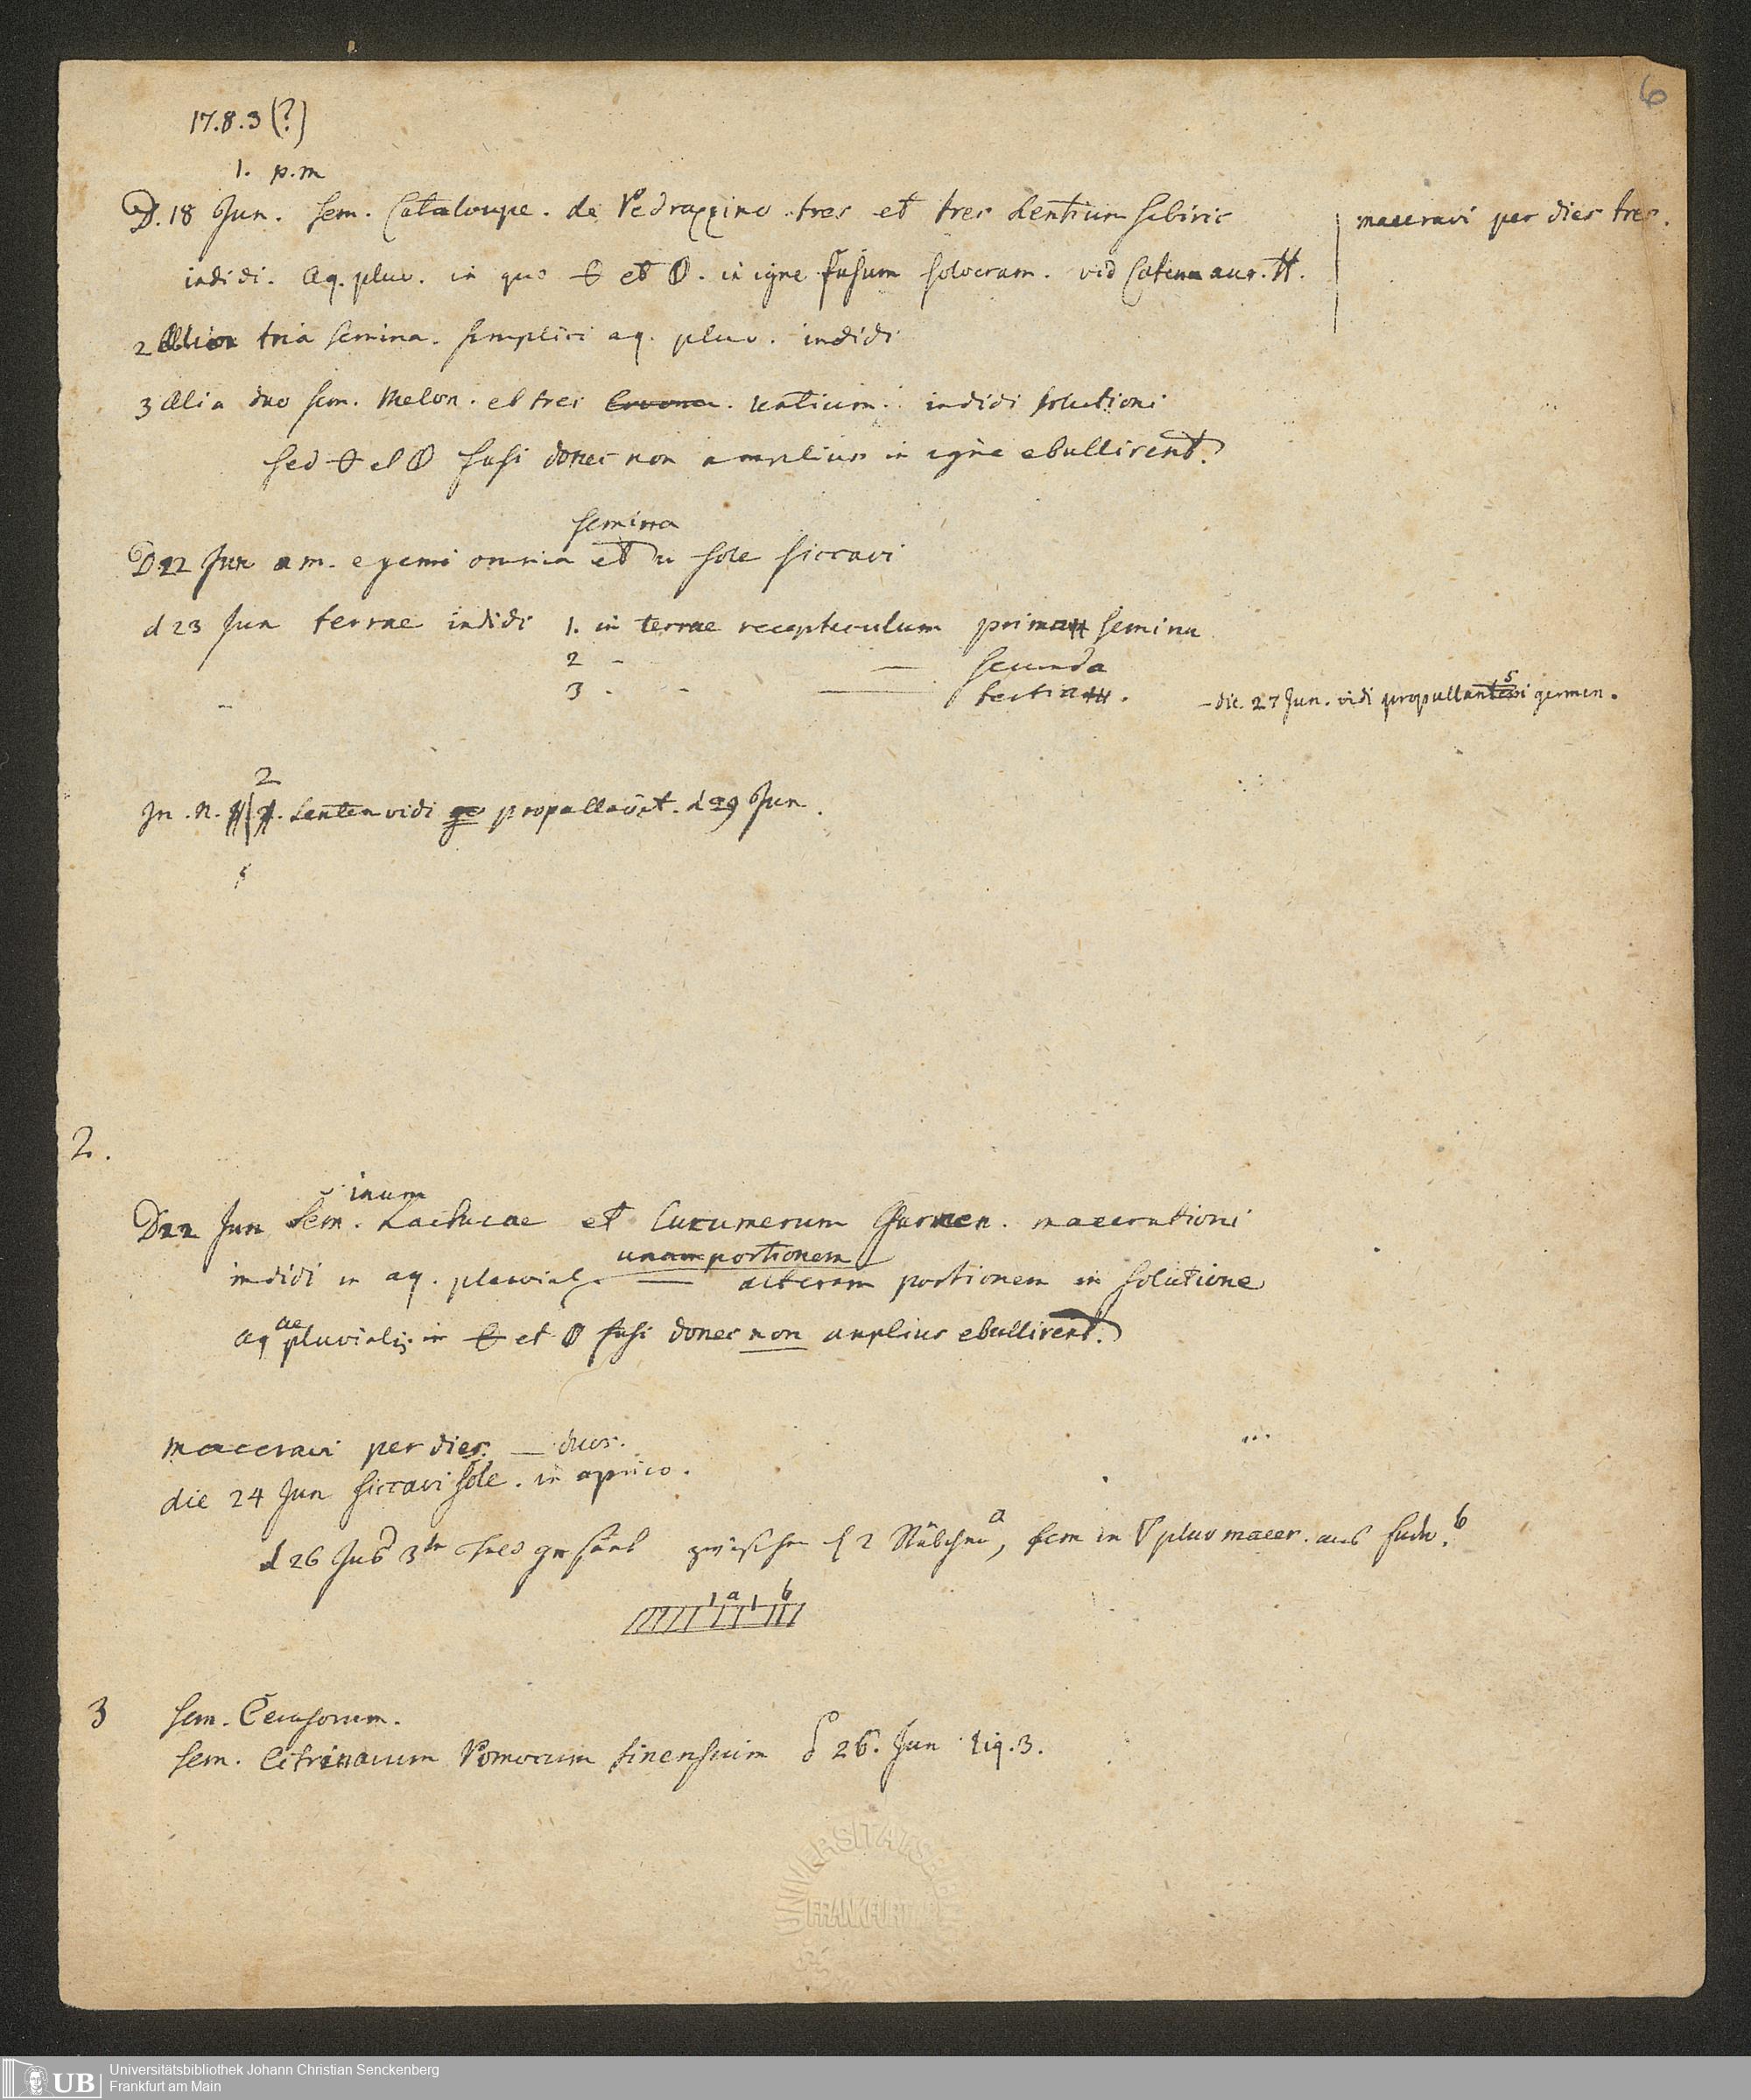 6
17.8.3 (?)
1. p.m
D. 18 Jun. sem. Cataloupe. de Pedrazzino tres et tres Lentium sibiric
maceravi per dies tres.
indidi. aq. pluv. in quo et in igne fusum solveram. vid Catena aur. H.
2 tria semina. simplici aq. pluv. indidi
3 Alia duo sem. Melon. et tres Lentium. indidi solutioni
sed et fusi donec non amplius in igne ebullirent.
semina
D 22 Jun a m. exemi omnia et in sole siccavi
d 23 Jun terrae indidi 1. in terrae receptaculum prima semina
2 - — secunda
3 . - — tertia. – die. 27 Jun. vidi germen.
2
In. N. Lentem vidi d 29 Jun.
2.
inum
D 22 Jun Sem. Lactucae et Cucumerum Germen. macerationi
unam portionem
indidi in aq. pluvial. — alteram portionem in solutione
ae
aq pluvialis in et fusi donec non amplius ebullirent.
maceravi per dies. — duos.
die 24 Jun siccavi sole. in aprico.
d 26 zwischen 2 Stäbchen a, sem in pluv macer. b
1 a 1 b
3 sem. Cerasorum.
sem. Citrinarum Pomorum sinensium 26. Jun lig. 3.
UNIVERSITÄTSBIBL
FRANKFURT
UB
Universitätsbibliothek Johann Christian Senckenberg
Frankfurt am Main